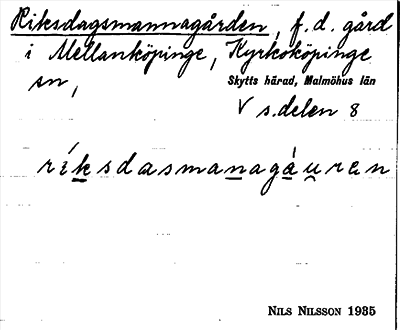 Riksdagsmannagården, f.d. gård
i Mellanköpinge, Kyrkoköpinge
sn, Skytts härad, Malmöhus län
V s.delen 8
ríksdasmanagáu̯ren
NILS NILSSON 1935